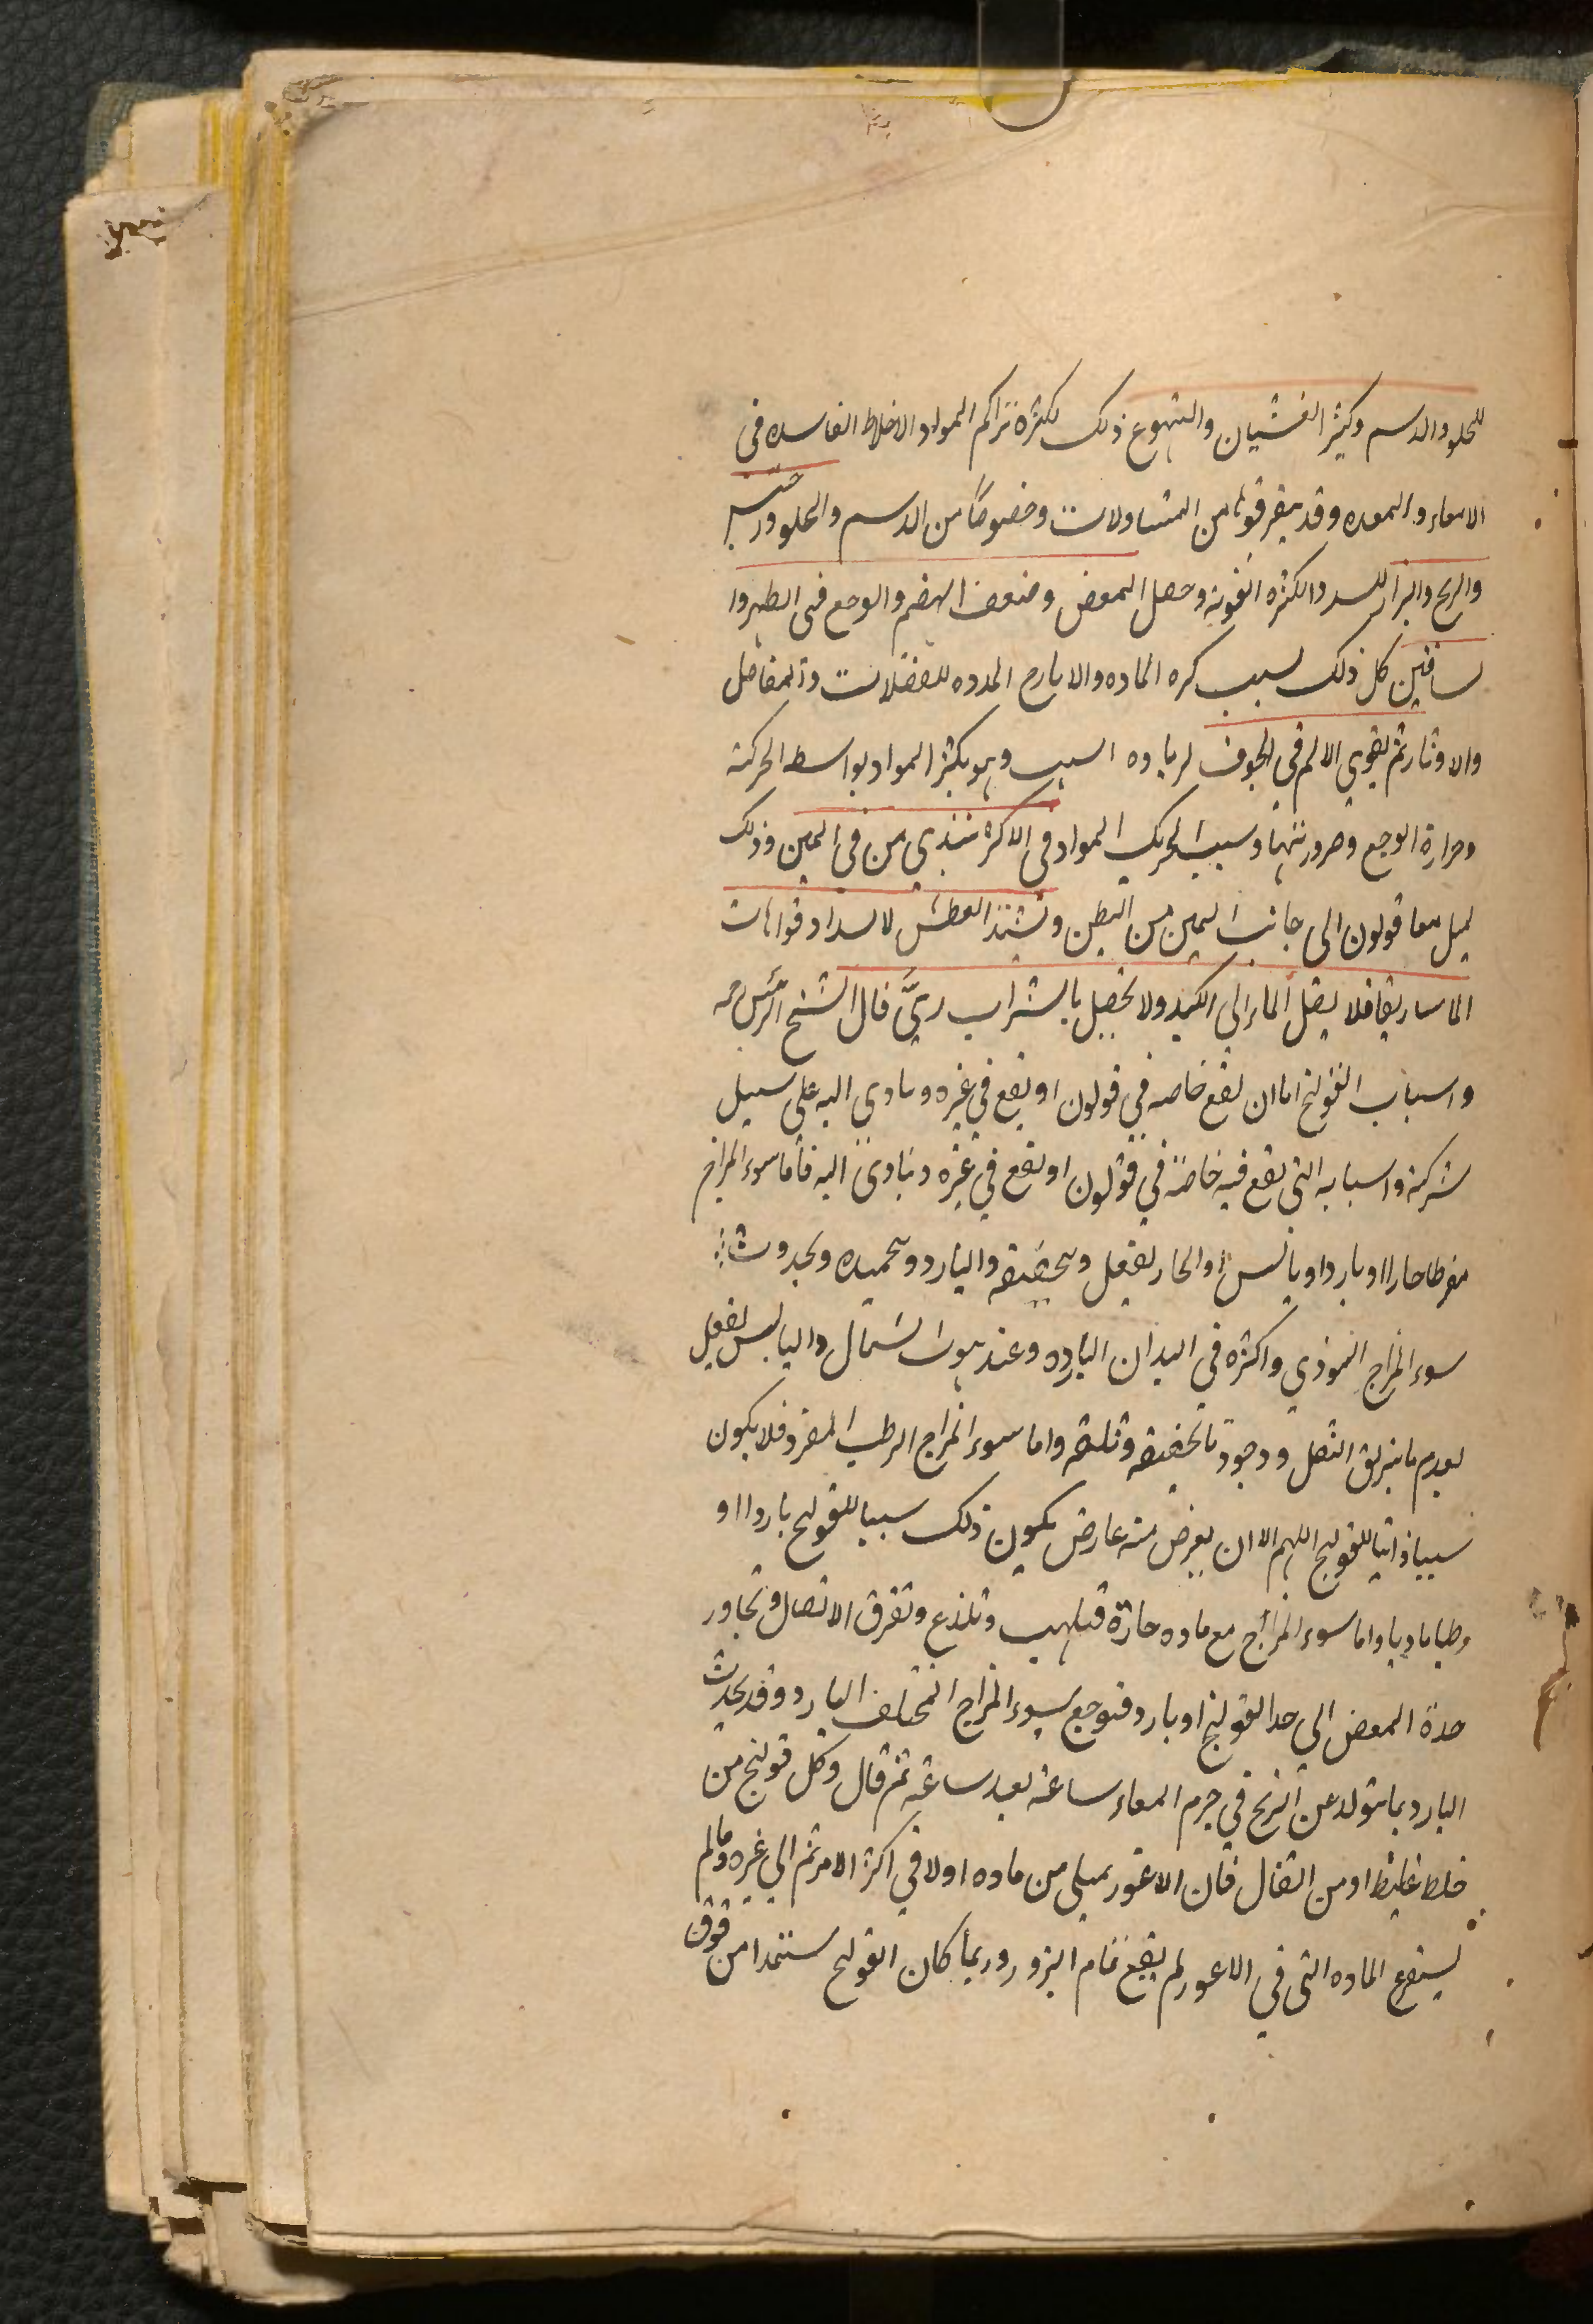 للحلو والدسم وكثير الغشيان والتهوع ذلك لكثرة تراكم المواد والاخلاط الفاسده فى
الامعاء والمعده وقد ينفر قوتها من المتناولات وخصوصًا من الدسم والحلو ويحتبس
والريح والبراز للسد والكثره القوية وحصل المغص وضعف الهضم والوجع فى الظهر وا
لساقين كل ذلك لسبب كثره الماده والارياح الممدده للعضلات والمفاصل
والاوتار ثم يقوي الالم في الجوف لزياده السبب وهو تكثر المواد بواسطه الحركة
وحرارة الوجع وضرورتهما وسبب تحريك المواد فى الاكثر يبتدي من فى اليمين وذلك
لميل معا قولون الى جانب اليمين من البطن ويشتد العطش لانسداد فوهات
الماساريقا فلا يصل الماء الى الكبد ولا يحصل بالشراب ريٌّ قال الشيخ الرئيس
واسباب القولنج اما ان تقع خاصه في قولون او تقع في غيره ويتادى اليه على سبيل
شركة واسبابه التي تقع فيه خاصة في قولون او تقع في غيره ويتادى اليه فاما سوء المزاج
مفرطا حارا او باردا او يابس او الحار يفعل وتجفيفه والبارد وتجميده ويحدوث
سوء المزاج الموذي واكثره في البدان البارده وعند هبوب الشمال واليابس يفعل
لعدم ما يزلق الثفل ووجود ما يجففه وثلثه واما سوء المزاج الرطب المفرد فلا يكون
سببا ذاتيا للقولنج اللهم الا ان يعرض منه عارض يكون ذلك سببا للقولنج باردا او
رطبا ماديا واما سوء المزاج مع ماده حارة فتلهب وتلذع وتفرق الاتصال وتجاوز
حدة المغص الى حد القولنج او بارد فتوجع بسوء المزاج المختلف البارد وقد يحدث
البارد بما يتولد عن الريح في جرم المعاء ساعة بعد ساعة ثم قال وكل قولنج من
خلط غليظ او من اثفال فان الاعور يمتلي من ماده اولا في اكثر الامر ثم الى غيره وما لم
يستفرغ الماده التى في الاعور لم يقع تمام البرؤ وربما كان القولنج مستمدا من فوق